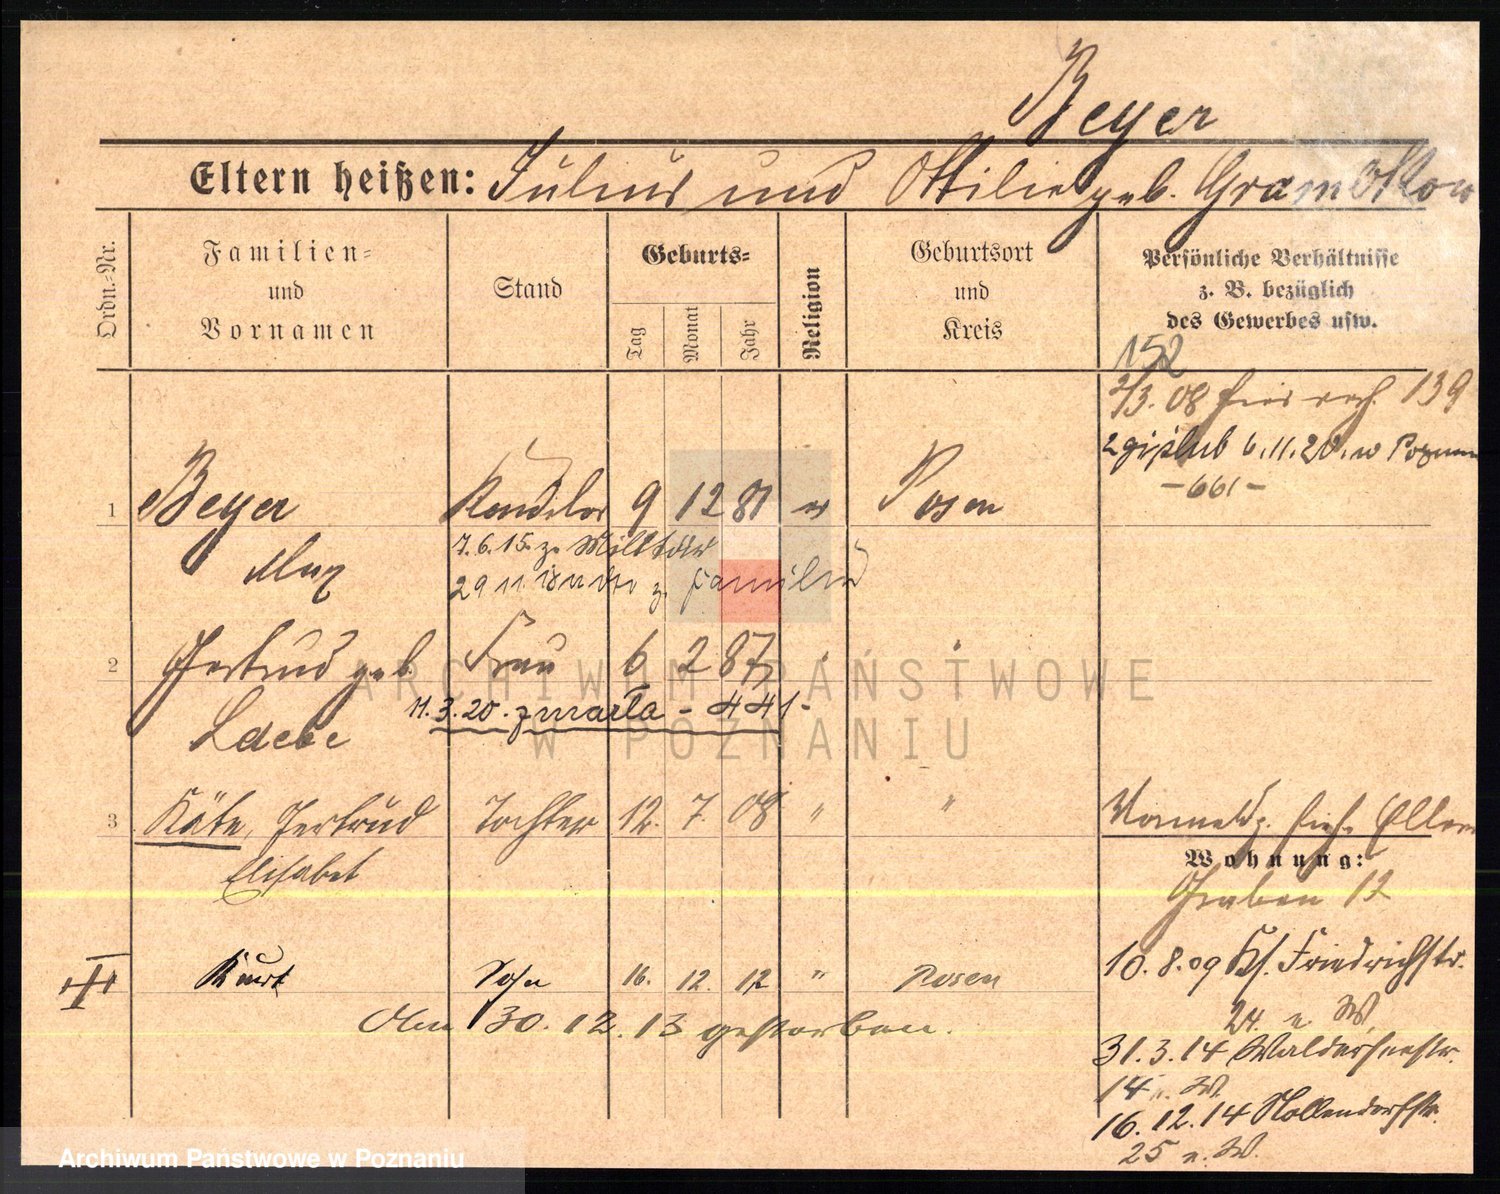 Beyer
Eltern heißen: Julius und Ottilie geb. Gramottow
Ordn.-Nr.
Familien- und Vornamen
Stand
Geburts-
Tag
Monat
Jahr
Religion
Geburtsort und Kreis
Persönliche Verhältnisse z. B. bezüglich des Gewerbes usw.
152
2/3. 08 139
2gi ślub 6.11.20. w Poznan
-661-
1 Beyer 9 12 81 ev Posen
7.6.15. z. Militär
Max
29 11 z. Familie
2 Gertrud geb. Frau 6 2 87 " "
11.3.20. zmarła - 441-
Laebe
3 Käte, Gertrud Tochter 12. 7. 08 " "
Elisabet
Wohnung:
Graben 12
Kurt Sohn 16. 12. 12 " Posen
10.8.09 Ks. Friedrichstr.
24. n W
Am 30.12.13 gestorben.
31.3.14 Walderseestr.
14 n. W.
16.12.14 Nollendorfstr.
25 n. W.
ARCHIWUM PAŃSTWOWE
W POZNANIU
Archiwum Państwowe w Poznaniu